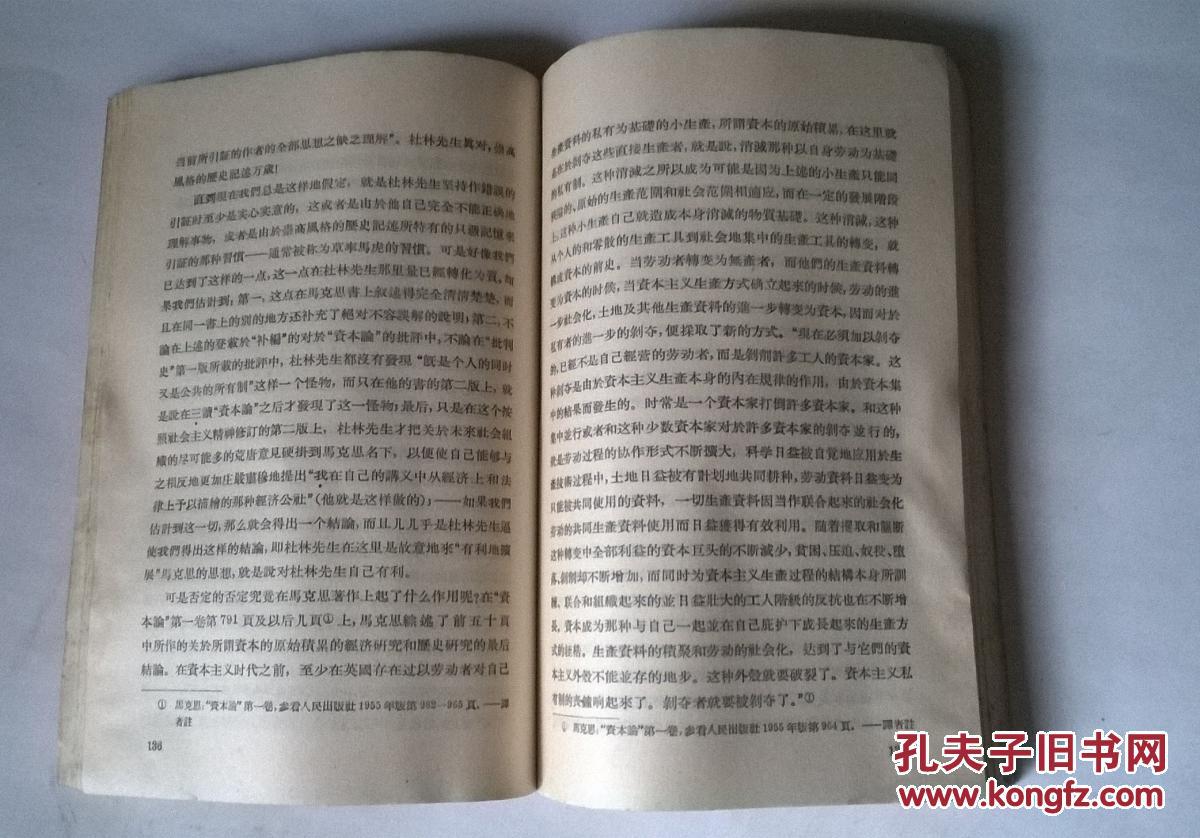 当前所引証的作者的全部思想之缺乏理解”。杜林先生眞对,崇高
風格的歷史記述万歲!
直到現在我們总是这样地假定,就是杜林先生坚持作錯誤的
引証时至少是实心实意的,这或者是由於他自己完全不能正確地
理解事物,或者是由於崇高風格的歷史記述所特有的只憑記憶來
引証的那种習慣——通常被称为草率馬虎的習慣。可是好像我們
已达到了这样的一点,这一点在杜林先生那里量已經轉化为質。如
果我們估計到:第一,这点在馬克思書上叙述得完全清清楚楚,而
且在同一書上的別的地方还补充了絕对不容誤解的說明;第二,不
論在上述的登載於“补編”的对於“資本論”的批評中,不論在“批判
史”第一版所載的批評中,杜林先生都沒有發現“旣是个人的同时
又是公共的所有制”这样一个怪物,而只在他的書的第二版上,就
是說在三讀“資本論”之后才發現了这一怪物;最后,只是在这个按
照社会主义精神修訂的第二版上,杜林先生才把关於未來社会組
織的尽可能多的荒唐意見硬掛到馬克思名下,以便使自己能够与
之相反地更加庄嚴
地提出“我在自己的講义中从經济上和法
律上予以描繪的那种經济公社”(他就是这样做的)——如果我們
估計到这一切,那么就会得出一个結論,而且几几乎是杜林先生逼
使我們得出这样的結論,即杜林先生在这里是故意地來“有利地擴
展”馬克思的思想,就是說对杜林先生自己有利。
可是否定的否定究竟在馬克思著作上起了什么作用呢?在“資
本論”第一卷第791頁及以后几頁①上,馬克思綜述了前五十頁
中所作的关於所謂資本的原始積累的經济研究和歷史研究的最后
結論。在資本主义时代之前,至少在英國存在过以劳动者对自己
① 馬克思:“資本論”第一卷,参看人民出版社1955年版第962—965頁。——譯
者註
136
生產資料的私有为基礎的小生產,所謂資本的原始積累,在这里就
是在於剝夺这些直接生產者,就是說,消滅那种以自身劳动为基礎
的私有制。这种消滅之所以成为可能是因为上述的小生產只能同
狹隘的、原始的生產范圍和社会范圍相適应,而在一定的發展階段
上,这种小生產自己就造成本身消滅的物質基礎。这种消滅,这种
从个人的和零散的生產工具到社会地集中的生產工具的轉变,就
構成資本的前史。当劳动者轉变为無產者,而他們的生產資料轉
变为資本的时候,当資本主义生產方式确立起來的时候,劳动的進
一步社会化,土地及其他生產資料的進一步轉变为資本,因而对於
私有者的進一步的剝夺,便採取了新的方式。“現在必須加以剝夺
的,已經不是自己經营的劳动者,而是剝削許多工人的資本家。这
种剝夺是由於資本主义生產本身的內在規律的作用,由於資本集
中的結果而發生的。时常是一个資本家打倒許多資本家。和这种
集中並行或者和这种少数資本家对於許多資本家的剝夺並行的,
就是劳动过程的协作形式不断擴大,科学日益被自覚地应用於生
產技術过程中,土地日益被有計划地共同耕种,劳动資料日益变为
只能被共同使用的資料,一切生產資料因当作联合起來的社会化
劳动的共同生產資料使用而日益獲得有效利用。随着攫取和壟断
这种轉变中全部利益的資本巨头的不断減少,貧困、压迫、奴役、墮
落、剝削却不断增加,而同时为資本主义生產过程的結構本身所訓
練、联合和組織起來的並日益壯大的工人階級的反抗也在不断增
長。資本成为那种与自己一起並在自己庇护下成長起來的生產方
式的桎梏。生產資料的積聚和劳动的社会化,达到了与它們的資
本主义外殼不能並存的地步。这种外殼就要破裂了。資本主义私
有制的喪鐘响起來了。剝夺者就要被剝夺了。”①
① 馬克思:“資本論”第一卷,参看人民出版社1955年版第964頁。——譯者註
孔夫子旧书网
www.kongfz.com